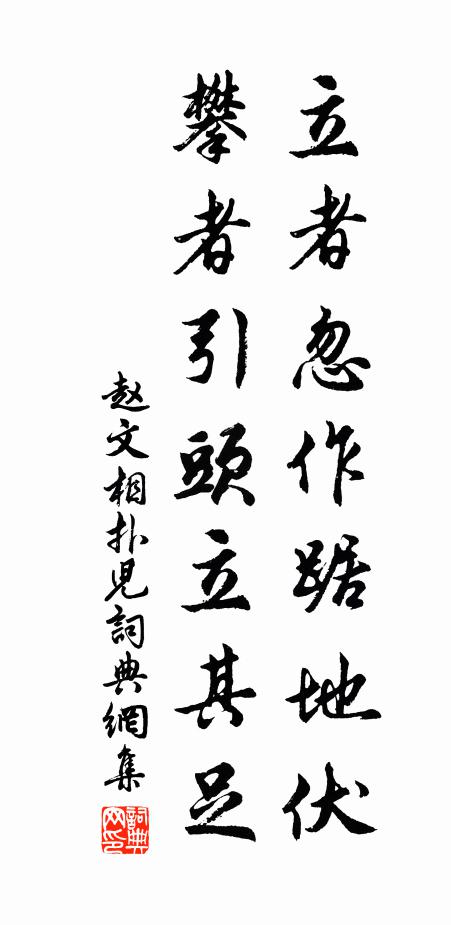 立者忽作踞地伏
攀者引頭立其足
赵文相扑儿詞典網集
詞典網印